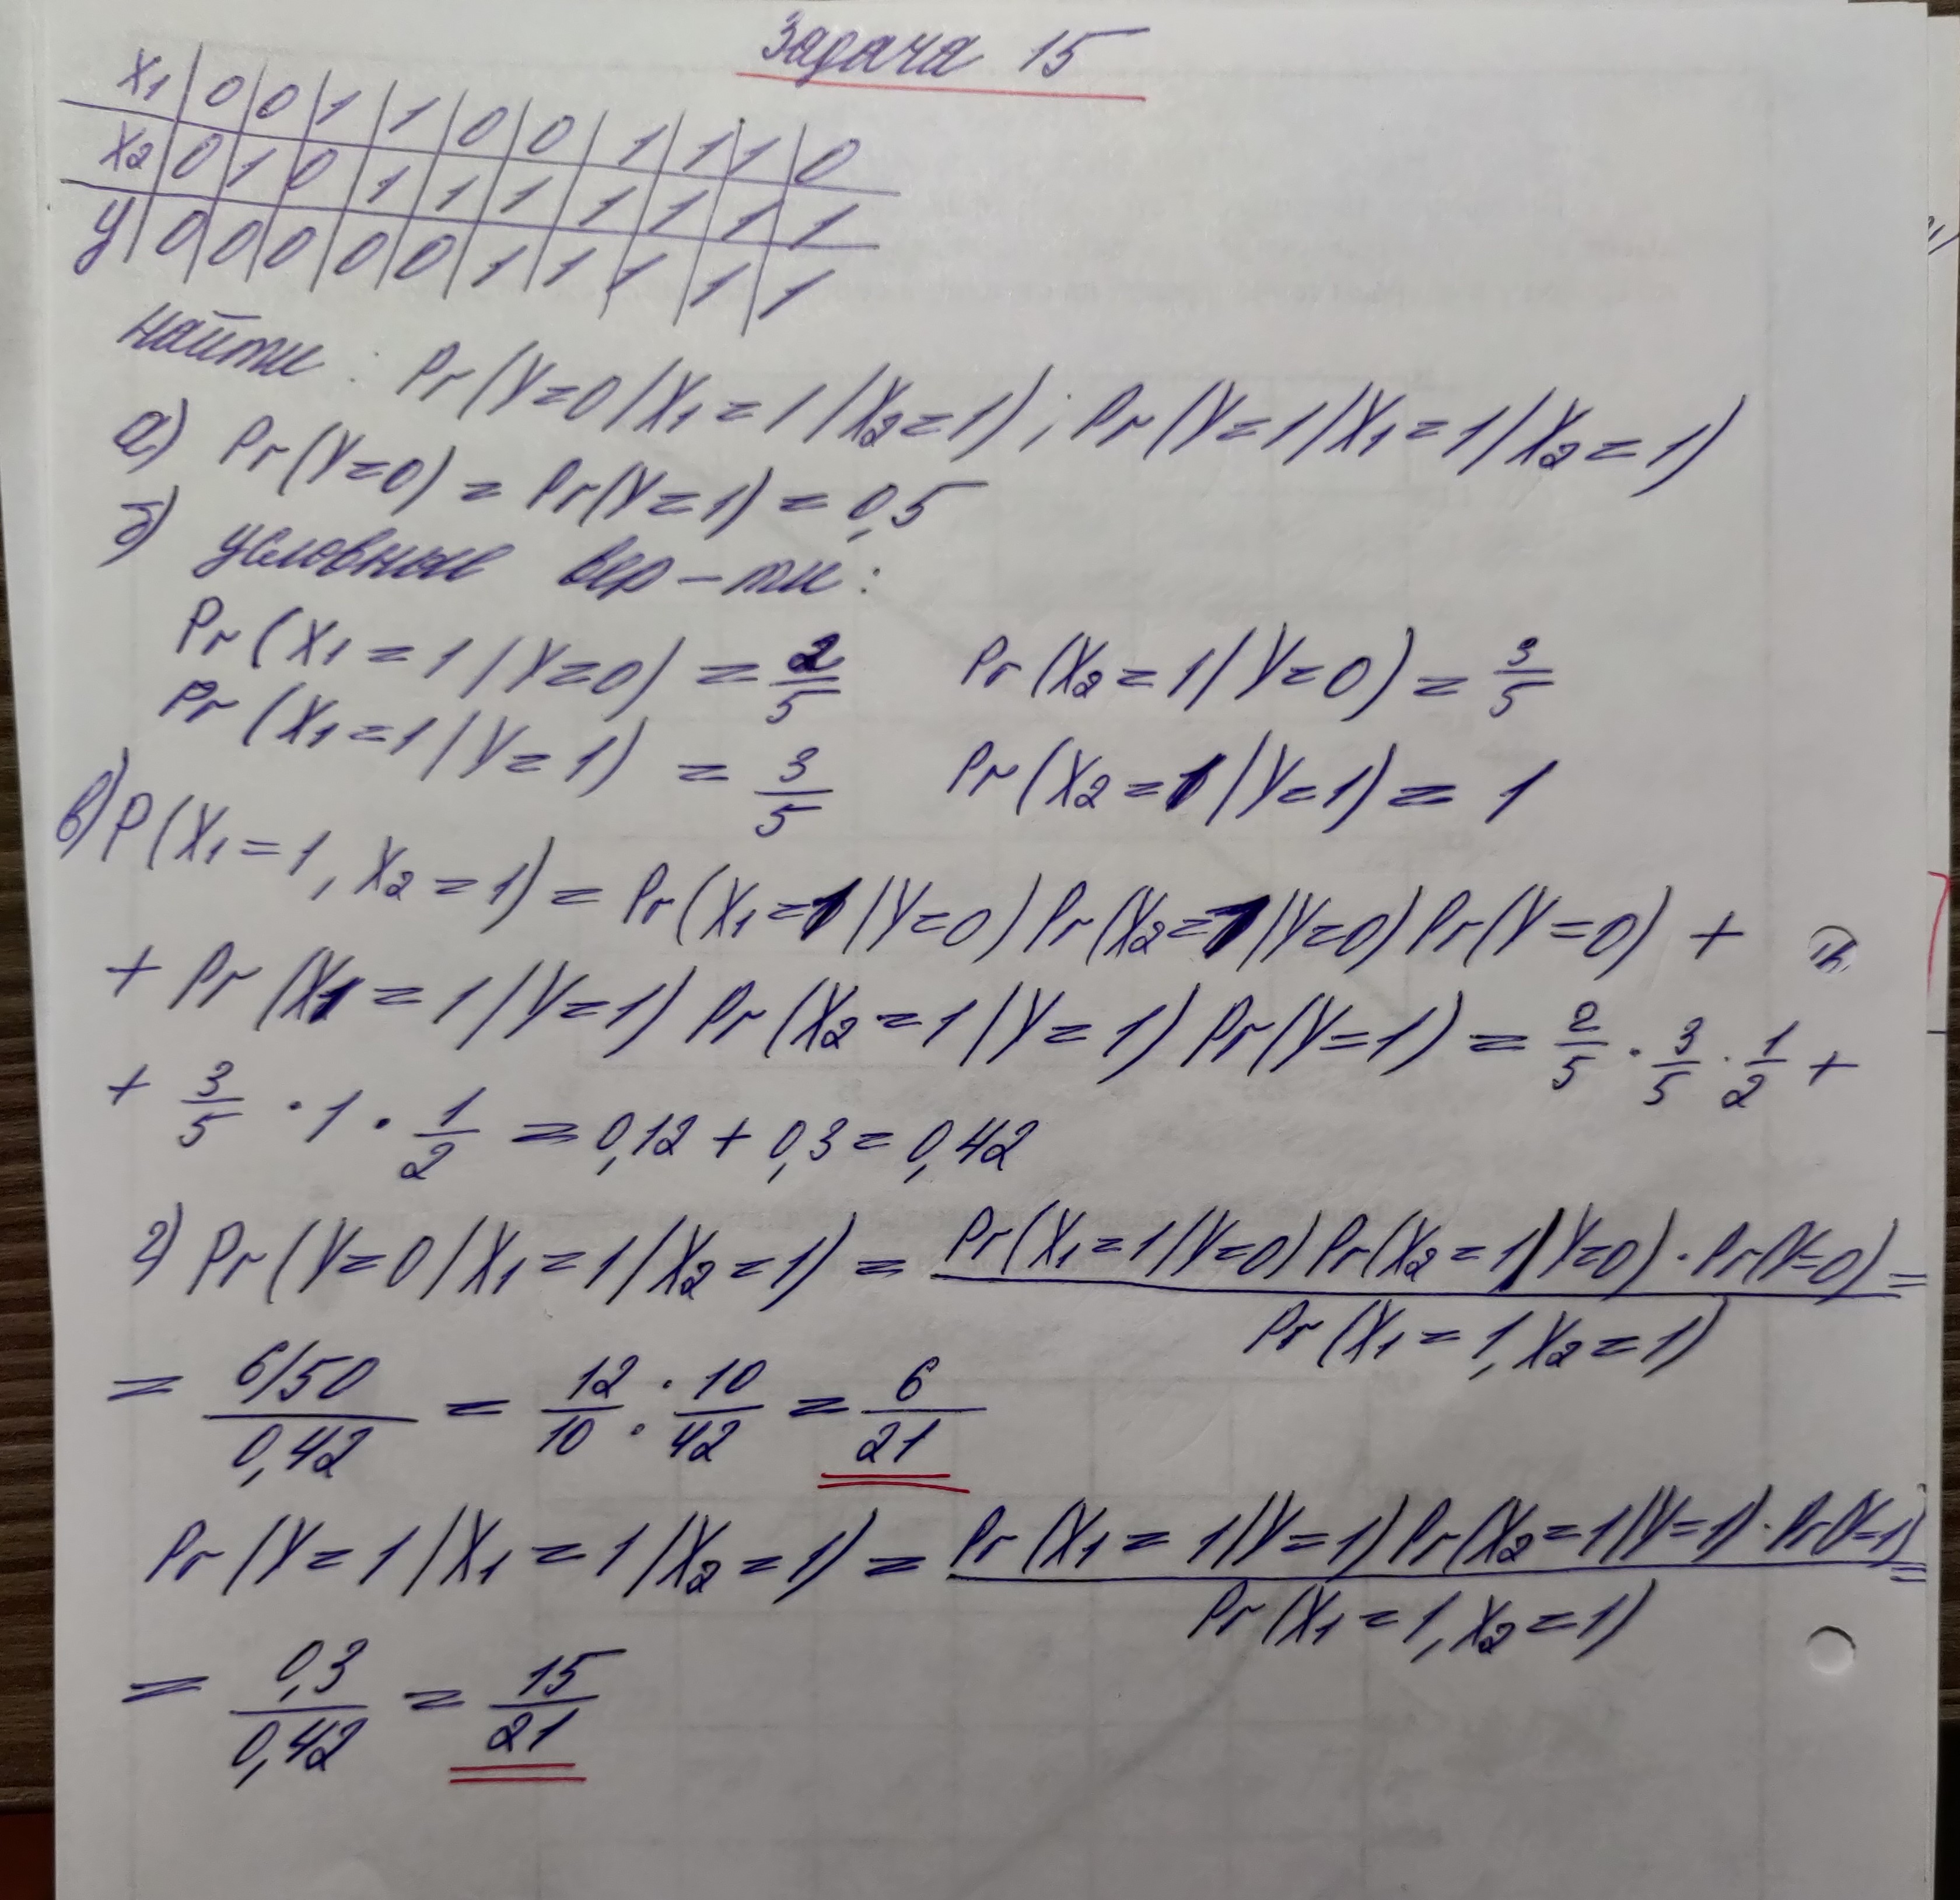 Задача 15
X1 0 0 1 1 0 0 1 1 1 0
X2 0 1 0 1 1 1 1 1 1 1
y 0 0 0 0 0 1 1 1 1 1
найти: Pr(Y=0/X1=1/X2=1); Pr(Y=1/X1=1/X2=1)
а) Pr(Y=0) = Pr(Y=1) = 0,5
б) условные вер-ти:
Pr(X1=1/Y=0) = 2/5 Pr(X2=1/Y=0) = 3/5
Pr(X1=1/Y=1) = 3/5 Pr(X2=1/Y=1) = 1
в) P(X1=1, X2=1) = Pr(X1=1/Y=0) Pr(X2=1/Y=0) Pr(Y=0) +
+ Pr(X1=1/Y=1) Pr(X2=1/Y=1) Pr(Y=1) = 2/5 · 3/5 · 1/2 +
+ 3/5 · 1 · 1/2 = 0,12 + 0,3 = 0,42
г) Pr(Y=0/X1=1/X2=1) = Pr(X1=1/Y=0) Pr(X2=1/Y=0) · Pr(Y=0) =
Pr(X1=1, X2=1)
= 6/50 / 0,42 = 12/10 · 10/42 = 6/21
Pr(Y=1/X1=1/X2=1) = Pr(X1=1/Y=1) Pr(X2=1/Y=1) · Pr(Y=1) =
Pr(X1=1, X2=1)
= 0,3/0,42 = 15/21